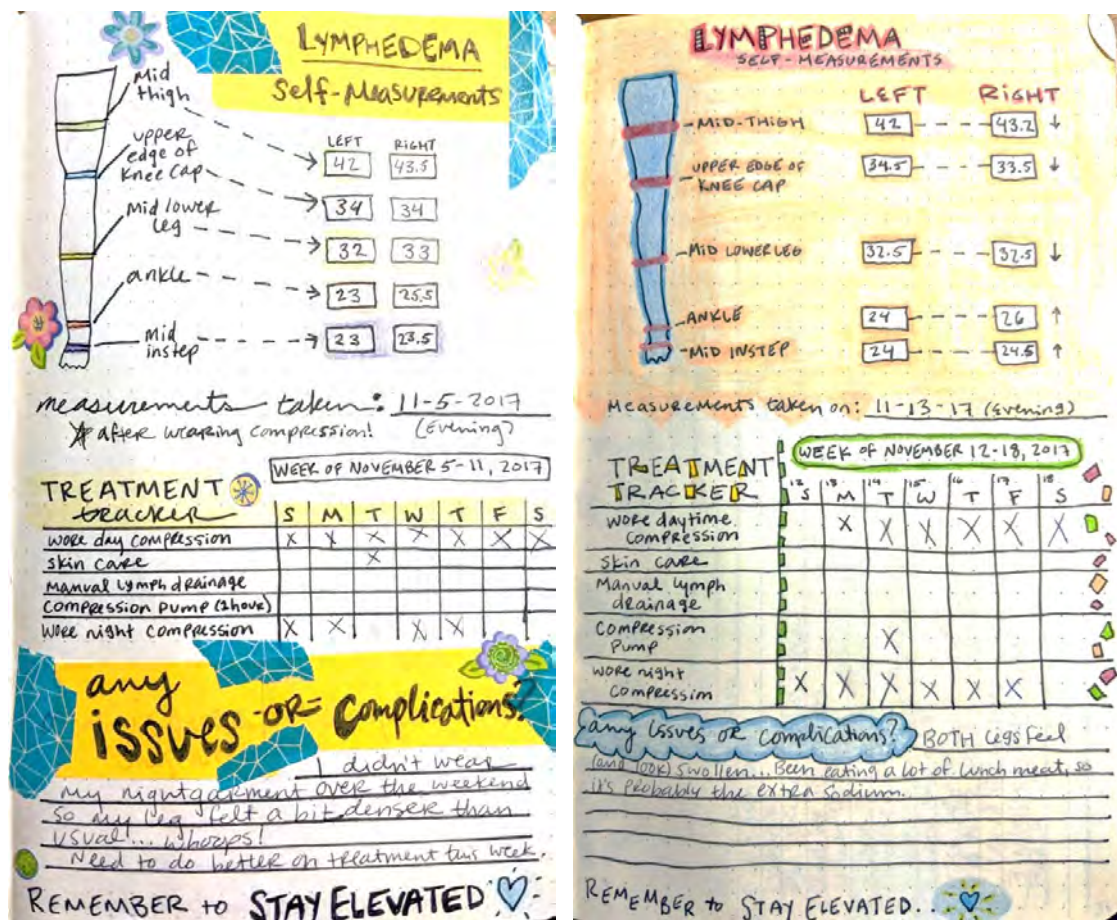 LYMPHEDEMA
Self-Measurements
LEFT RIGHT
Mid thigh 42 43.5
upper edge of Knee Cap 34 34
Mid lower leg 32 33
ankle 23 25.5
mid instep 23 23.5
measurements taken: 11-5-2017
after wearing compression! (Evening)
WEEK OF NOVEMBER 5-11, 2017
TREATMENT tracker S M T W T F S
wore day compression X X X X X X X
skin care X
Manual lymph drainage
compression pump (1 hour)
wore night compression X X X X
any
issues -OR- Complications?
I didn't wear
my nightgarment over the weekend
so my leg felt a bit denser than
usual... whoops!
Need to do better on treatment this week.
REMEMBER to STAY ELEVATED
LYMPHEDEMA
SELF-MEASUREMENTS
LEFT RIGHT
MID-THIGH 42 43.2 ↓
UPPER EDGE OF KNEE CAP 34.5 33.5 ↓
MID LOWER LEG 32.5 32.5 ↓
ANKLE 24 26 ↑
MID INSTEP 24 24.5 ↑
Measurements taken on: 11-13-17 (Evening)
WEEK OF NOVEMBER 12-18, 2017
TREATMENT TRACKER
12 13 14 15 16 17 18
S M T W T F S
wore daytime compression X X X X X X
skin care
Manual lymph drainage
compression pump X
wore night compression X X X X X X
any issues or complications? BOTH legs feel
(and look) swollen... Been eating a lot of lunch meat, so
it's probably the extra sodium.
REMEMBER to STAY ELEVATED.